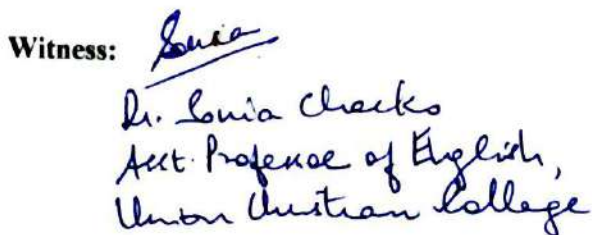 Witness: Sonia
Dr. Sonia Chacko
Asst. Professor of English,
Union Christian College